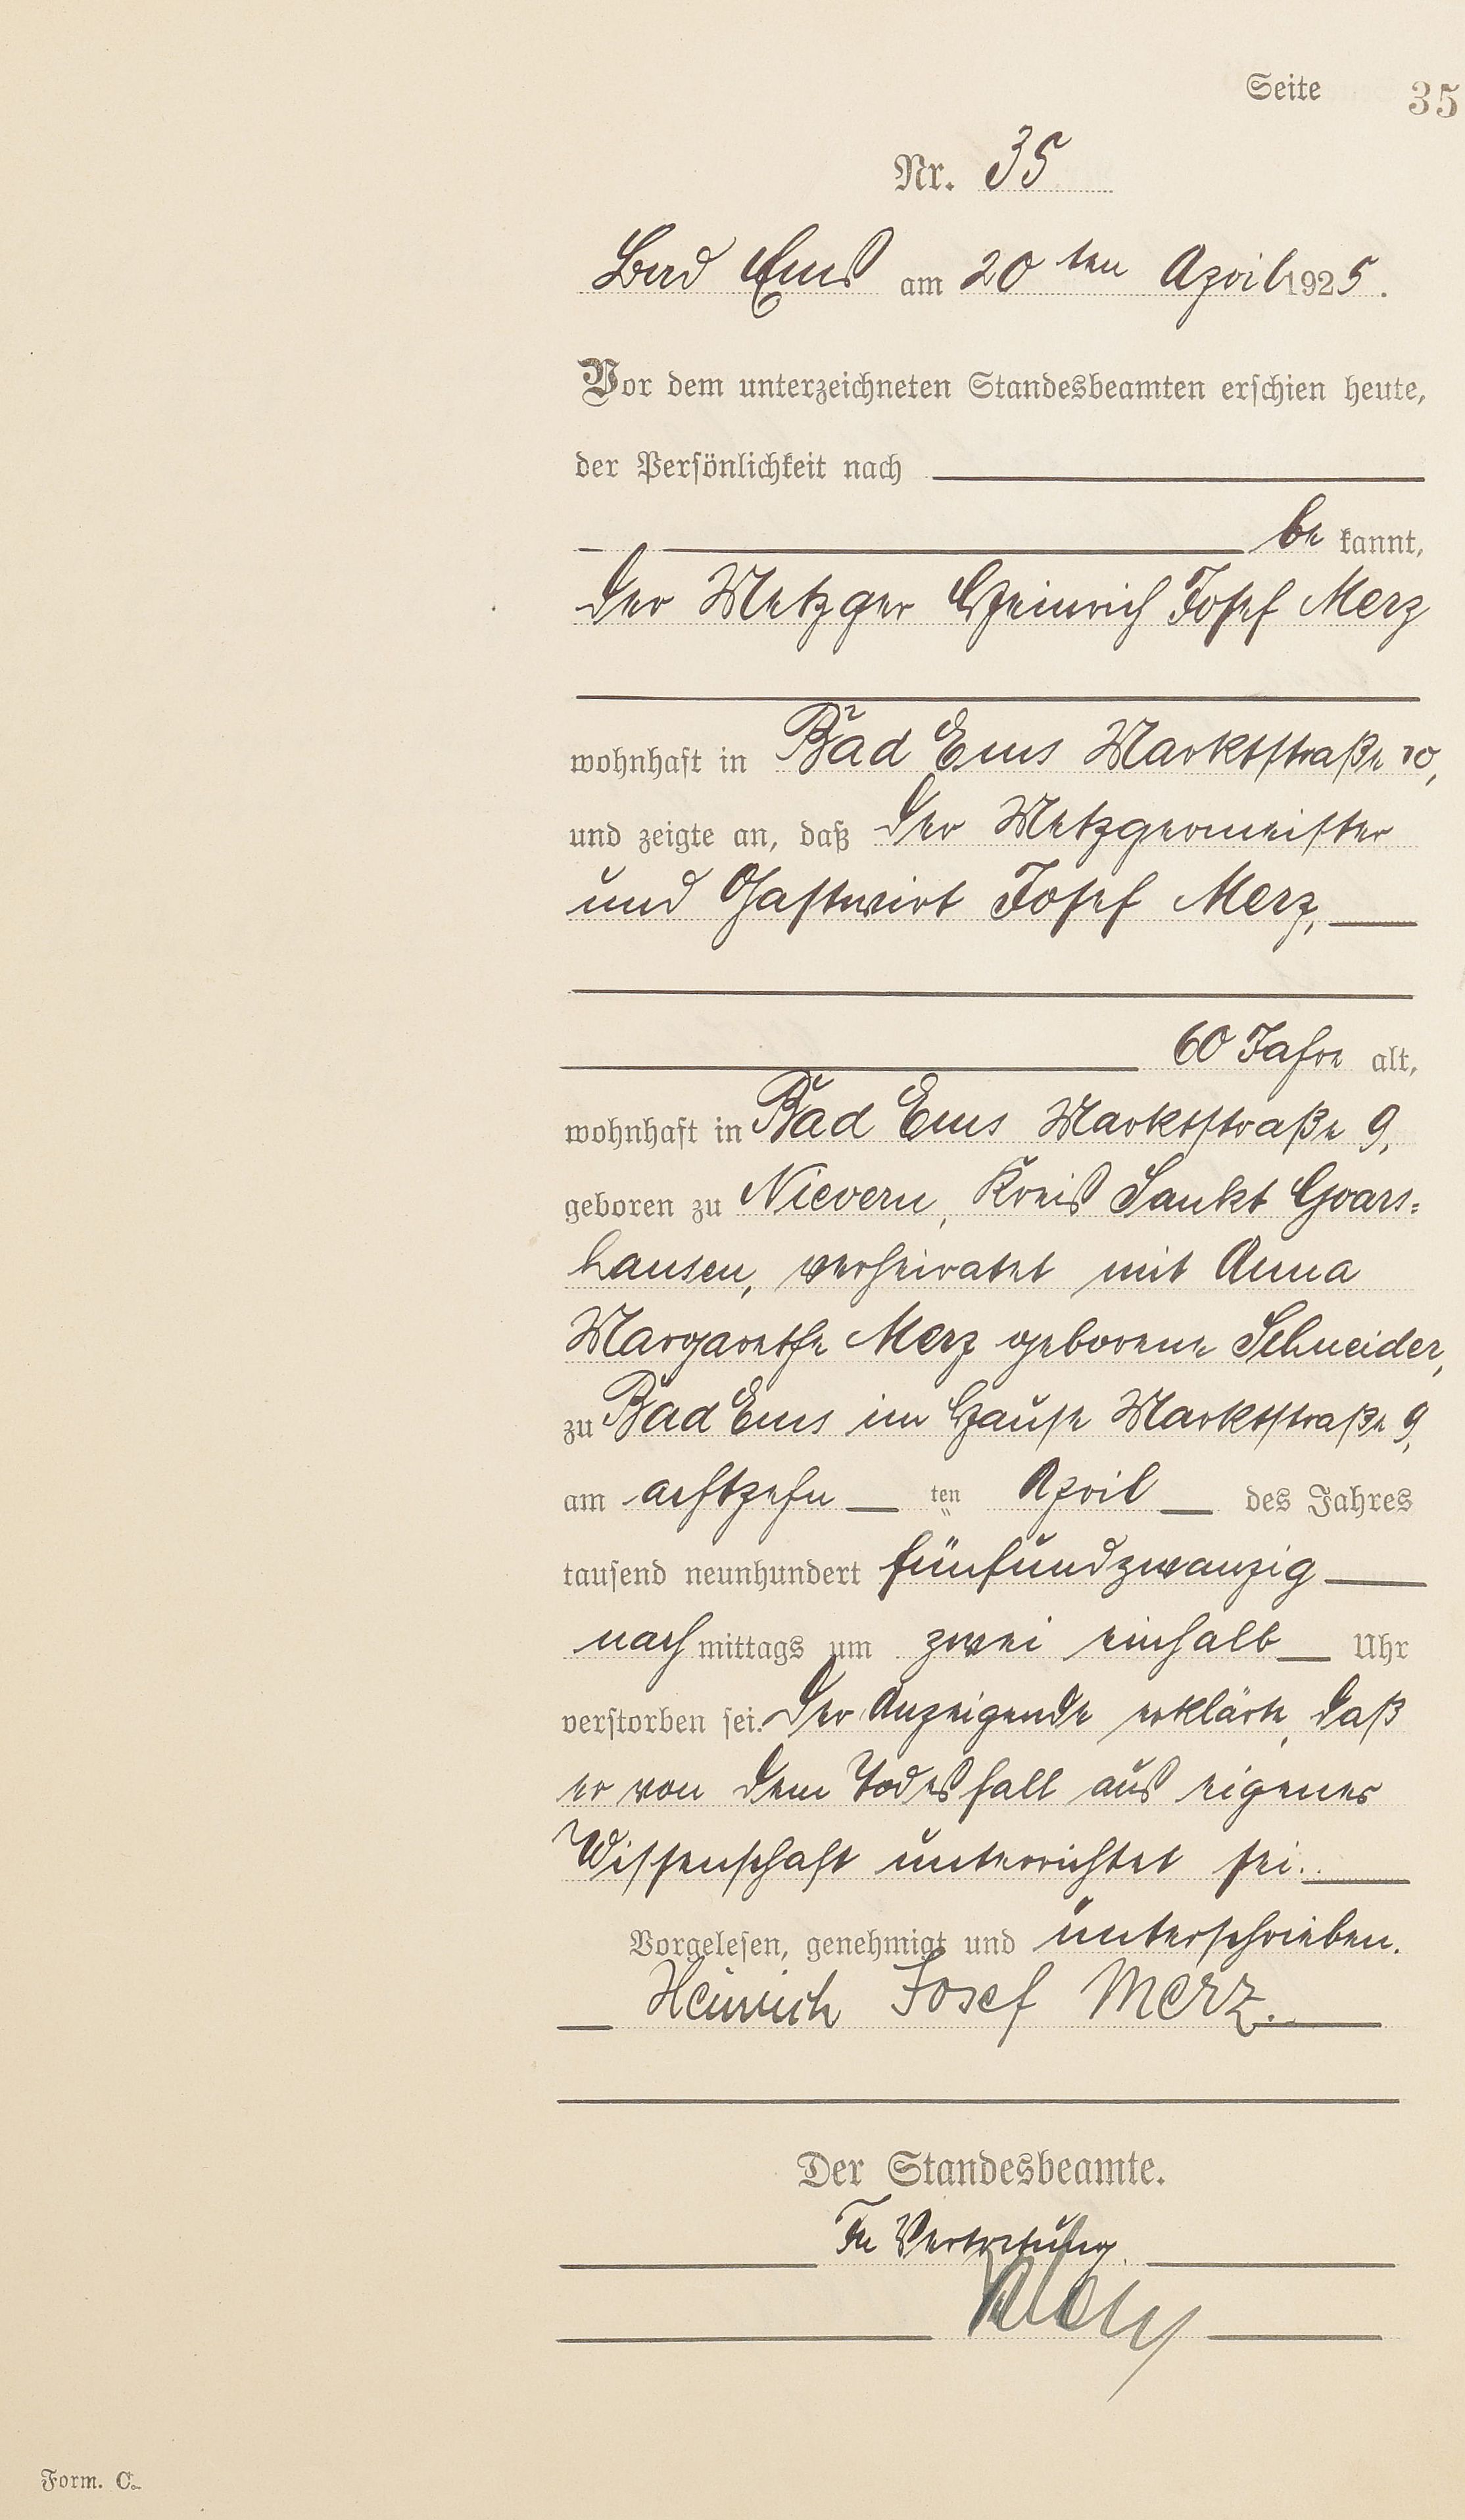 Seite 35
Nr. 35
Bad Ems am 20 ten April 1925.
Vor dem unterzeichneten Standesbeamten erschien heute,
der Persönlichkeit nach
be kannt,
der Metzger Heinrich Josef Merz
wohnhaft in Bad Ems Marktstraße 10,
und zeigte an, daß der Metzgermeister
und Gastwirt Josef Merz,
60 Jahre alt,
wohnhaft in Bad Ems Marktstraße 9,
geboren zu Nievern, Kreis Sankt Goars=
hausen, verheiratet mit Anna
Margarethe Merz geborene Schneider,
zu Bad Ems im Hause Marktstraße 9,
am achtzehn ten April des Jahres
tausend neunhundert fünfundzwanzig
nachmittags um zwei einhalb Uhr
verstorben sei. Der Anzeigende erklärte, daß
er von dem Todesfall aus eigener
Wissenschaft unterrichtet sei.
Vorgelesen, genehmigt und unterschrieben.
Heinrich Josef Merz.
Der Standesbeamte.
In Vertretung.
Form. C.